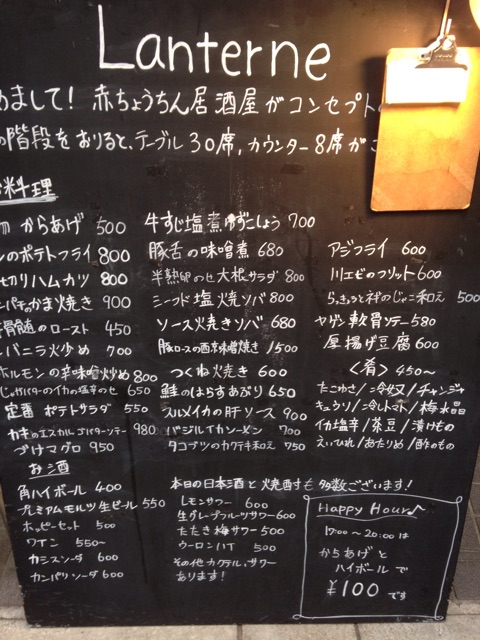 Lanterne
めまして! 赤ちょうちん居酒屋がコンセプト
の階段をおりると、テーブル30席、カウンター8席が
料理
からあげ 500
のポテトフライ 800
切りハムカツ 800
かま焼き 900
骨髄のロースト 450
レバニラ炒め 700
ホルモンの辛味噌炒め 800
じゃがバターのイカの塩辛のせ 650
定番 ポテトサラダ 550
カキのエスカルゴバターソテー 980
づけマグロ 950
牛すじ塩煮ゆずこしょう 700
豚舌の味噌煮 680
半熟卵のせ大根サラダ 800
シーフード塩焼ソバ 800
ソース焼きソバ 680
豚ロースの西京味噌焼き 1500
つくね焼き 600
鮭のはらすあぶり 650
スルメイカの肝ソース 900
バジルイカソーメン 700
タコブツのカクテキ和え 750
アジフライ 600
川エビのフリット 600
らっきょうと のじゃこ和え 500
ヤゲン軟骨ソテー 580
厚揚げ豆腐 600
〈肴〉 450〜
たこゆさ/冷奴/チャンジャ
キュウリ/冷しトマト/梅水晶
イカ塩辛/茶豆/漬けもの
えいひれ/あたりめ/酢のもの
お酒
角ハイボール 400
プレミアムモルツ生ビール 550
ホッピーセット 500
ワイン 550〜
カシスソーダ 600
カンパリソーダ 600
本日の日本酒と焼酎も多数ございます!
レモンサワー 600
生グレープフルーツサワー 600
たたき梅サワー 500
ウーロンハイ 500
その他カクテル、サワー
あります!
Happy Hour♪
17:00〜20:00は
からあげと
ハイボールで
¥100です